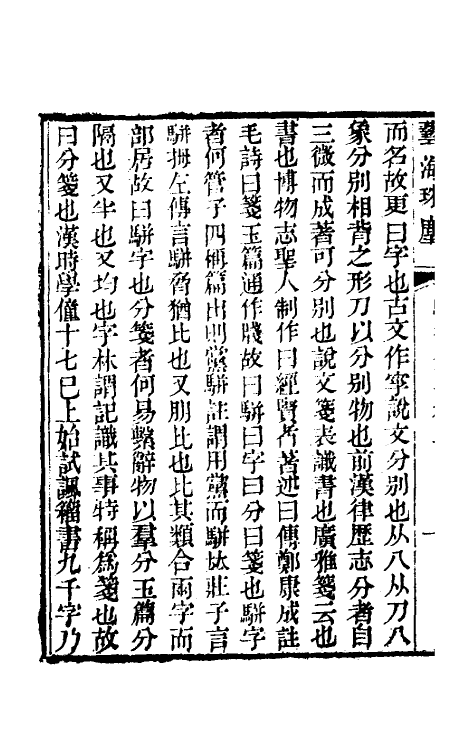 藝海珠塵
而名故更曰字也古文作㝊說文分别也从八从刀八
象分别相背之形刀以分别物也前漢律歷志分者自
三微而成著可分别也說文箋表識書也廣雅箋云也
書也博物志聖人制作曰經賢者著述曰傳鄭康成註
毛詩曰箋玉篇通作牋故曰駢曰字曰分曰箋也駢字
者何管子四稱篇出則黨駢註謂用黨而駢竝莊子言
駢拇左傳言駢脅猶比也又刖比也比其類合兩字而
部居故曰駢字也分箋者何易繫辭物以羣分玉篇分
隔也又半也又均也字林謂記識其事特稱爲箋也故
曰分箋也漢時學僮十七已上始試諷籀書九千字乃